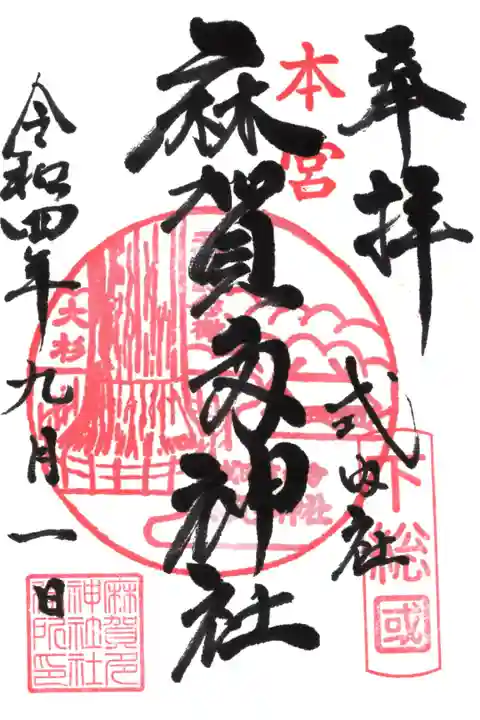 奉拝
式内社
下総
國
本宮
麻賀多神社
大杉
令和四年九月一日
麻賀多
神社